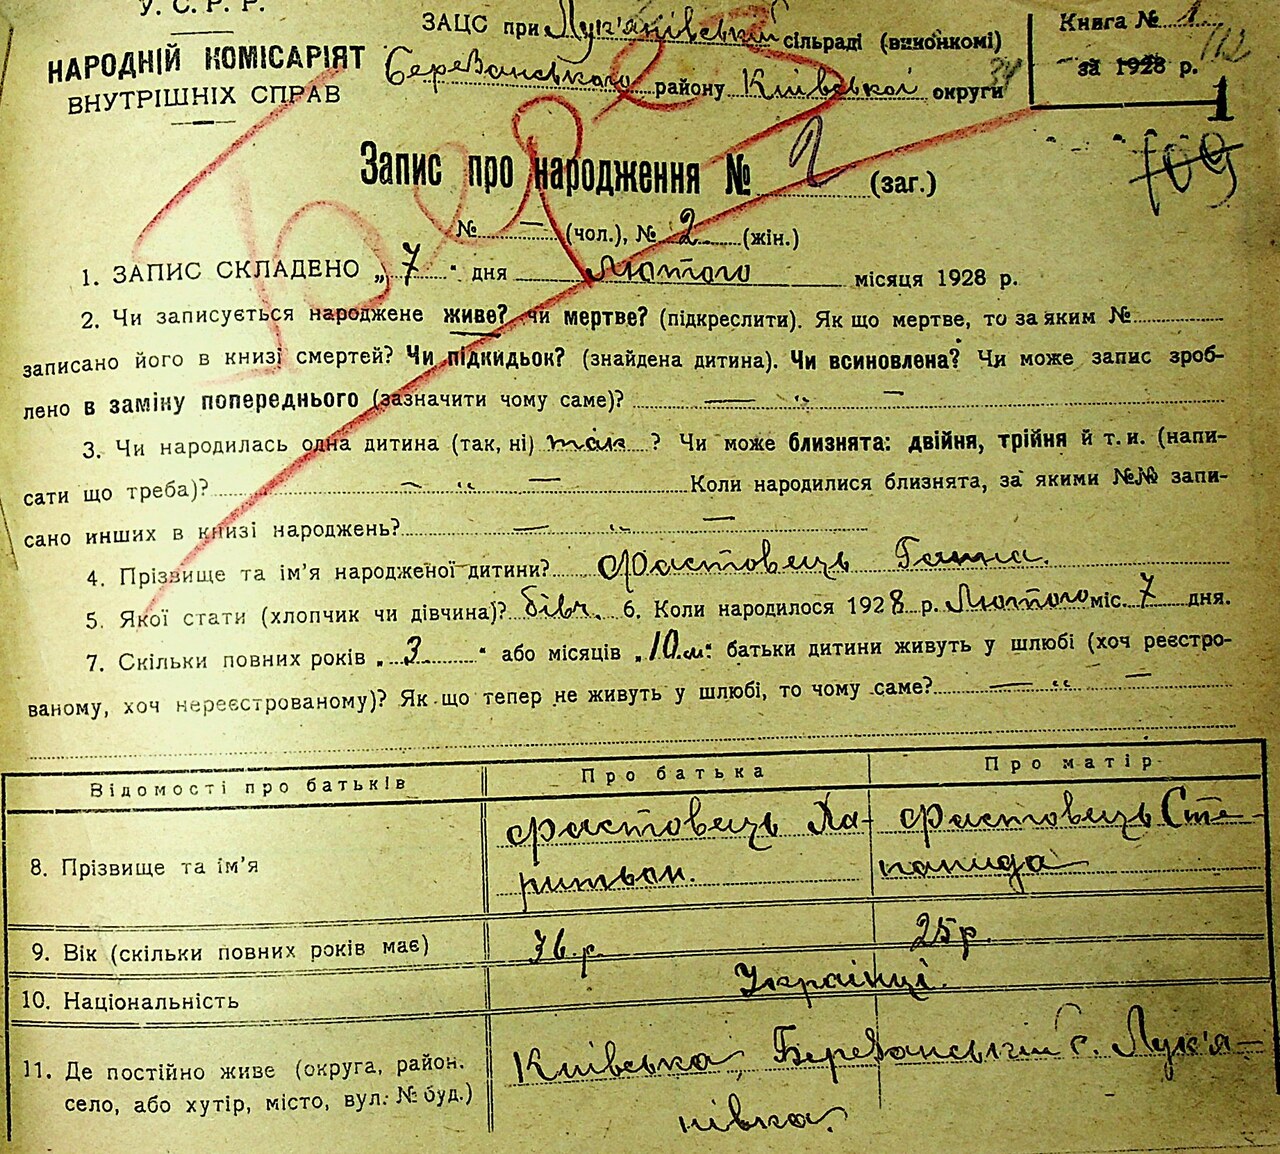 У. С. Р. Р.
НАРОДНІЙ КОМІСАРІЯТ
ВНУТРІШНІХ СПРАВ
ЗАЦС при Лук'янівській сільраді (виконкомі)
Березанського району Київської округи
Книга № 1
за 1928 р.
112
34
1
109
Запис про народження № 2 (заг.)
№ — (чол.), № 2 (жін.)
1. ЗАПИС СКЛАДЕНО „7" дня Лютого місяця 1928 р.
2. Чи записується народжене живе? чи мертве? (підкреслити). Як що мертве, то за яким №
записано його в книзі смертей? Чи підкидьок? (знайдена дитина). Чи всиновлена? Чи може запис зроб-
лено в заміну попереднього (зазначити чому саме)? — „ —
3. Чи народилась одна дитина (так, ні) так ? Чи може близнята: двійня, трійня й т. и. (напи-
сати що треба)? — „ — Коли народилися близнята, за якими №№ запи-
сано инших в книзі народжень? — „ —
4. Прізвище та ім'я народженої дитини? Фастовець Ганна.
5. Якої стати (хлопчик чи дівчина)? дівч. 6. Коли народилося 1928 р. Лютого міс. 7 дня.
7. Скільки повних років „3" або місяців „10 м" батьки дитини живуть у шлюбі (хоч реєстро-
ваному, хоч нереєстрованому)? Як що тепер не живуть у шлюбі, то чому саме? — „ —
Відомості про батьків Про батька Про матір
8. Прізвище та ім'я Фастовець Ха- Фастовець Сте-
ритьон. панида
9. Вік (скільки повних років має) 36 р. 25 р.
10. Національність Українці.
11. Де постійно живе (округа, район. Київська, Березанський с. Лук'я-
село, або хутір, місто, вул. № буд.) нівка.